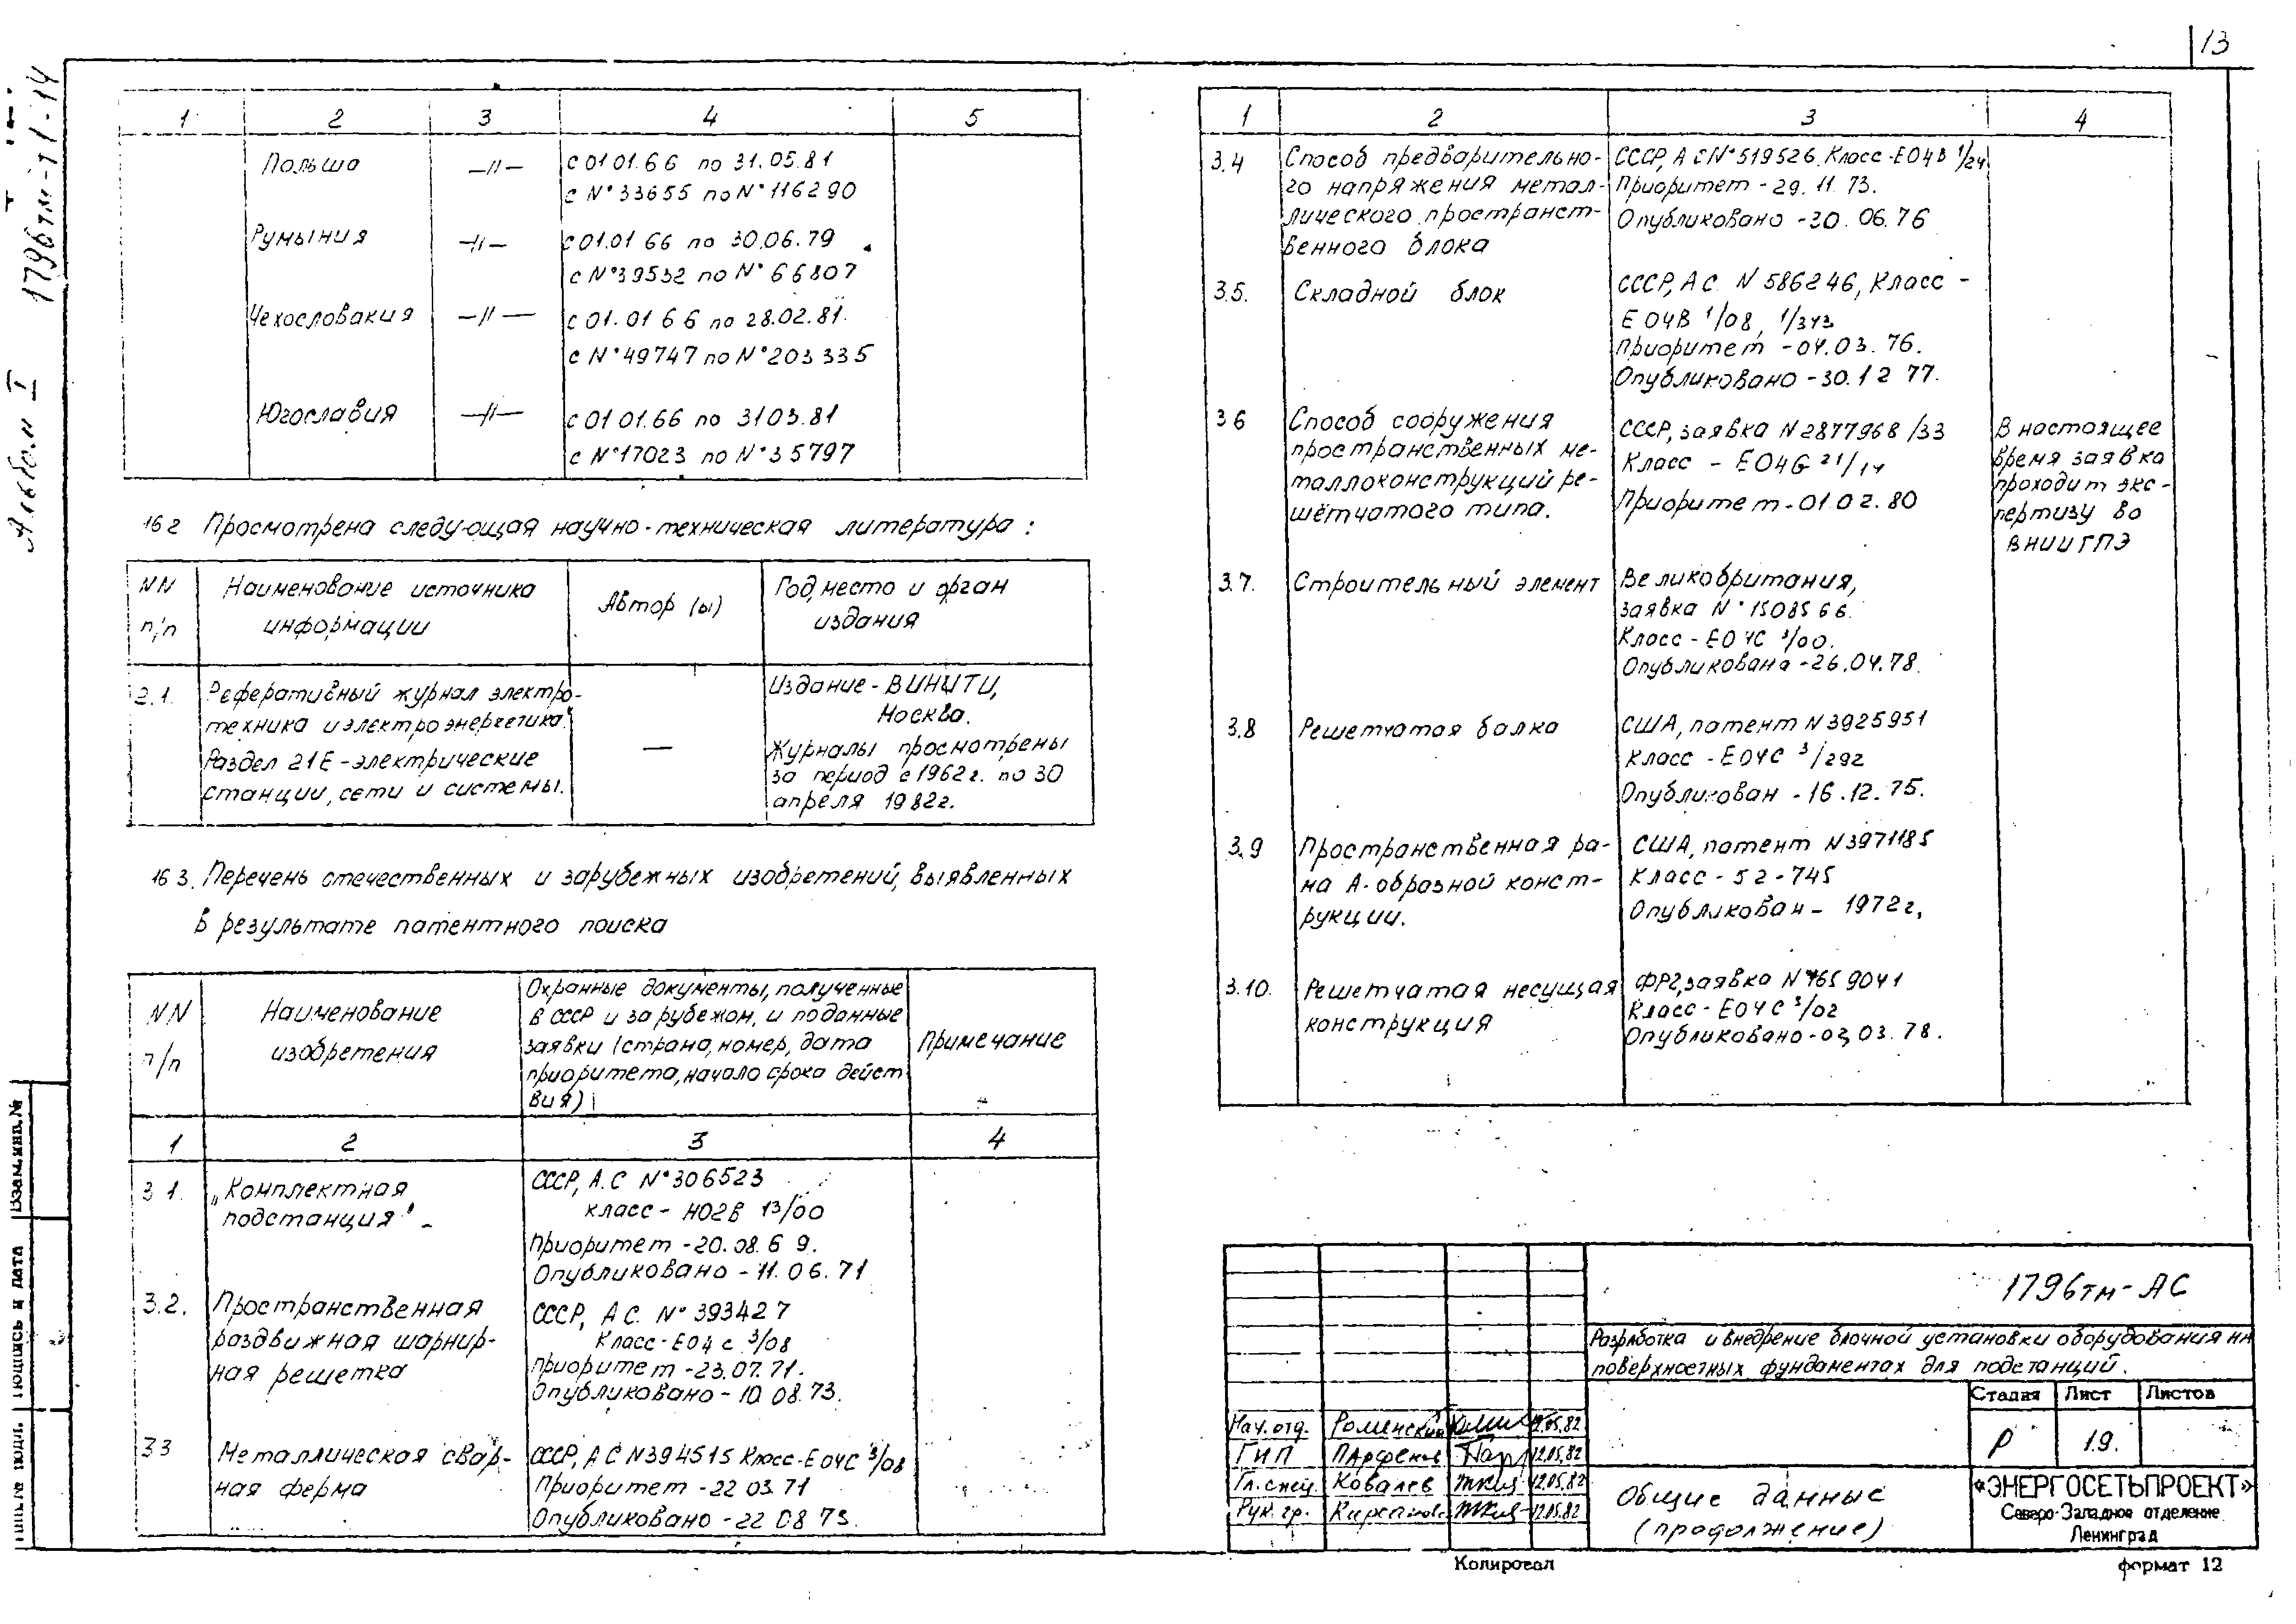 13
Альбом I 1796тм-т1-14
1 2 3 4 5
Польша —"— с 01 01.66 по 31.05.81
с N°33655 по N°116290
Румыния —"— с 01.01 66 по 30.06.79
с N°39532 по N°66807
Чехословакия —"— с 01.01 66 по 28.02.81.
с N°49747 по N°203335
Югославия —"— с 01 01.66 по 31 03.81
с N°17023 по N°35797
16 2 Просмотрена следующая научно-техническая литература :
NN п/п
Наименование источника информации
Автор (ы)
Год, место и орган издания
2.1. Реферативный журнал электро-
техника и электроэнергетика"
Раздел 21Е - электрические
станции, сети и системы.
—
Издание - ВИНИТИ,
Москва.
Журналы просмотрены
за период с 1962г. по 30
апреля 1982г.
16 3. Перечень отечественных и зарубежных изобретений, выявленных
в результате патентного поиска
NN п/п
Наименование
изобретения
Охранные документы, полученные
в СССР и за рубежом, и поданные
заявки (страна, номер, дата
приоритета, начало срока дейст
вия)
Примечание
1 2 3 4
3 1. „Комплектная
подстанция"
СССР, А.С N°306523
класс - H02B 13/00
Приоритет - 20.08.69.
Опубликовано - 11.06.71
3.2. Пространственная
раздвижная шарнир-
ная решетка
СССР, А С. N° 393427
Класс - Е04 с 3/08
приоритет - 23.07.71.
Опубликовано - 10.08.73.
3 3 Металлическая свар-
ная ферма
СССР, А С N394515 Класс - Е04С 3/08
Приоритет - 22 03.71
Опубликовано - 22 08 73.
1 2 3 4
3.4 Способ предварительно-
го напряжения метал-
лического пространст-
венного блока
СССР, А с N°519526. Класс - Е04В 1/24
Приоритет - 29. 11. 73.
Опубликовано - 30. 06. 76
3.5. Складной блок
СССР, А С. N 586246, Класс -
Е 04В 1/08, 1/343
Приоритет - 04.03. 76.
Опубликовано - 30.12 77.
3 6 Способ сооружения
пространственных ме-
таллоконструкций ре-
шётчатого типа.
СССР, заявка N 2877968 /33
Класс - Е04G 21/14
Приоритет - 01 02. 80
В настоящее
время заявка
проходит экс-
пертизу во
ВНИИГПЭ
3.7. Строительный элемент
Великобритания,
заявка N°1508566.
Класс - Е04С 3/00.
Опубликована - 26.04.78.
3.8 Решетчатая балка
США, патент N3925951
Класс - Е04С 3/292
Опубликован - 16.12. 75.
3.9 Пространственная ра-
ма А-образной конст-
рукции.
США, патент N3971185
Класс - 52-745
Опубликован - 1972г,
3.10. Решетчатая несущая
конструкция
ФРГ, заявка N°1659041
Класс - Е04С 3/02
Опубликовано - 02, 03. 78.
1796тм-АС
Разработка и внедрение блочной установки оборудования на
поверхностных фундаментах для подстанций.
Стадия Лист Листов
Р 1.9.
Нач. отд. Роменский 12.05.82
ГИП Парфенов 12.05.82
Гл. спец. Ковалев 12.05.82
Рук. гр. 12.05.82
Общие данные
(продолжение)
«ЭНЕРГОСЕТЬПРОЕКТ»
Северо-Западное отделение
Ленинград
Копировал формат 12
Взам. инв. №
Подпись и дата
Инв. № подл.